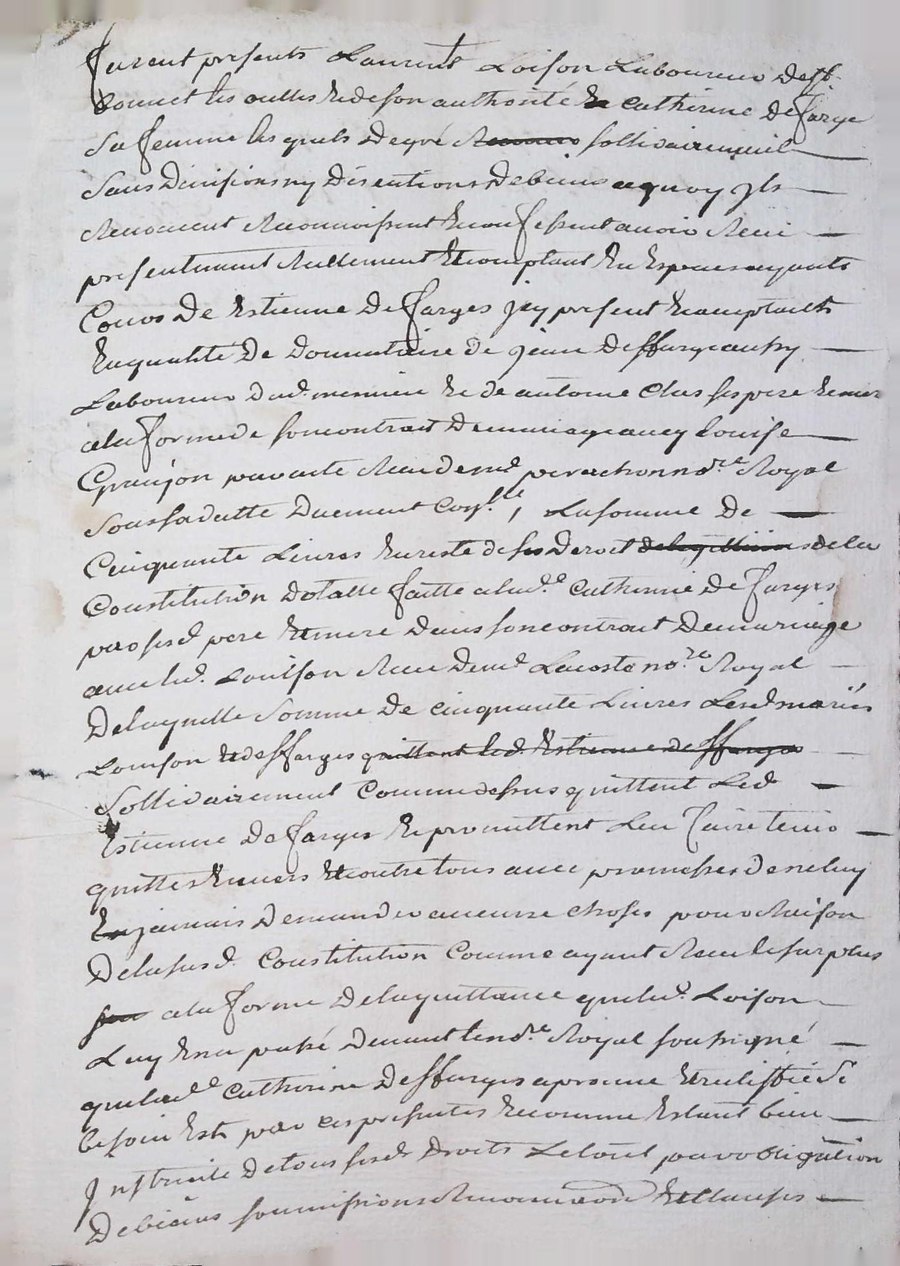 furent presents Laurent Loison Laboureur de st
bonnet les oulles et de son authorité Catherine Defarge
Sa femme lesquels de gré sollidairement
Sans Divisions ny Discutions de biens a quoy jls
Renoncent Reconnoissent et confessent avoir Receu
presentement Rellement et comptant en Especes ayants
Cours de Estienne Defarges jcy present et acceptant
En qualité de Donnataire de jean Deffarge aussy
Laboureur dud. et de antoine ses pere et mere
a la forme de son contrat de mariage avecq louise
Granjon par acte Receu de me nore Royal
Sous sa datte Duement Conlle, La somme De
Cinquante Livres En reste de ses Droits de la
Constitution Dotalle faitte a lade. Catherine De farges
par sesd. pere et mere Dans son contrat De mariage
avec led. Loison Receu De me Lacoste nore Royal
De laquelle Somme De cinquante Livres Lesd mariés
Loison et deffarges quittent led Estienne deffarges
Sollidairement Comme dessus quittent Led
Estienne De farges et promettent Len faire tenir
quittes Envers et contre tous avec promesses De ne luy
En jamais Demander aucune choses pour Raison
De la susd. Constitution Comme ayant Receu le surplus
a la forme De la quittance que led. Loison
Luy En a passé Devant le nore. Royal soussigné
que lade. Catherine Deffarges approuve et ratiffie Si
besoin Est par ces presentes Et comme Estant bien
Jnstruite de tous sesd Droits Le tout par obligation
De biens soumissions Renonciaôn Et Clauses